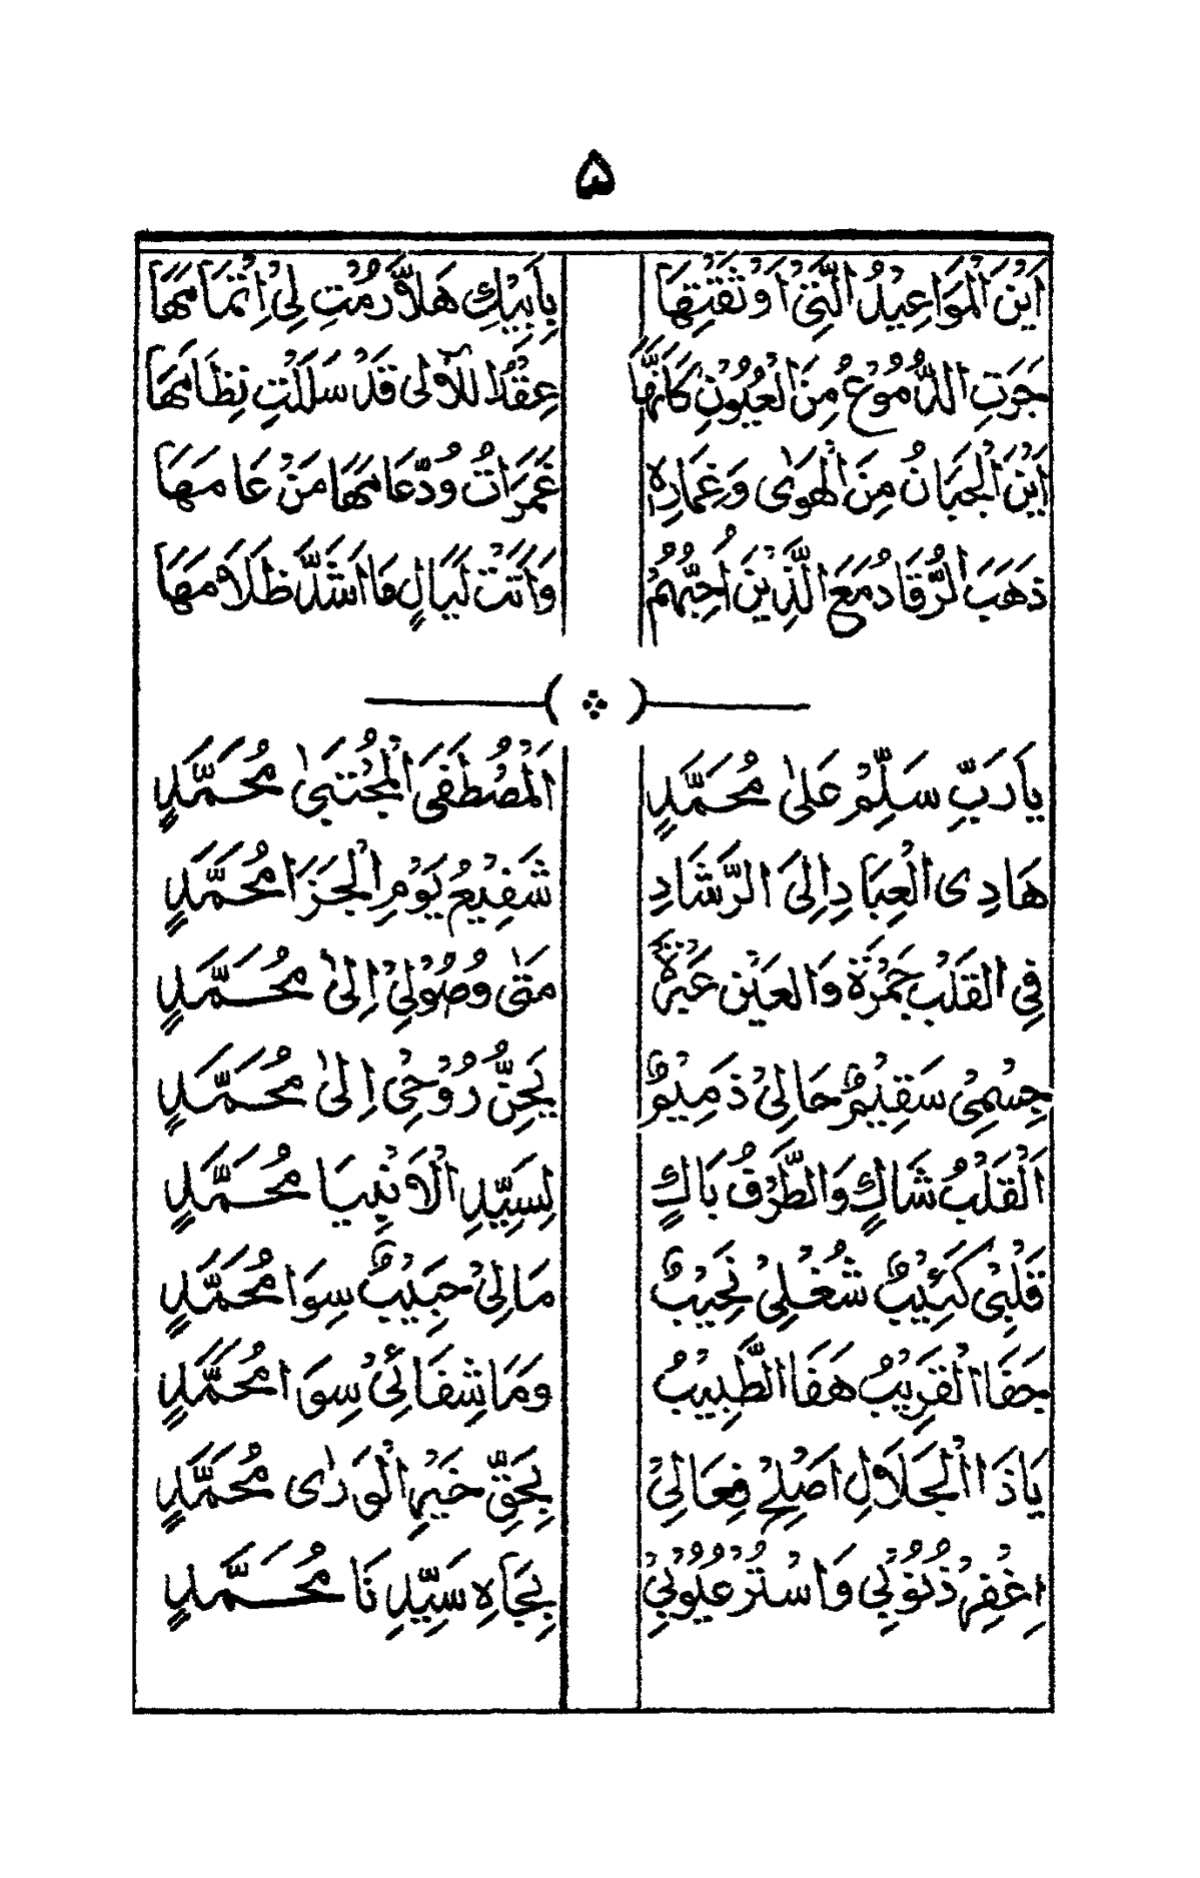 ۵
اَيْنَ الْمَوَاعِيْدُ الَّتِيْ اَوْثَقْتِهَا بِاَبِيْكِ هَلَّا رُمْتِ لِيْ اِتْمَامَهَا
جَرَتِ الدُّمُوْعُ مِنَ الْعُيُوْنِ كَاَنَّهَا عِقْدُ اللَّاٰلِى قَدْ سَلَلْتِ نِظَامَهَا
اَيْنَ الْجَبَانُ مِنَ الْهَوٰى وَغِمَارِهٖ غَمَرَاتُ وُدٍّ عَامَهَا مَنْ عَامَهَا
ذَهَبَ الرُّقَادُ مَعَ الَّذِيْنَ اُحِبُّهُمْ وَاَتَتْ لَيَالٍ مَا اَشَدَّ ظَلَامَهَا
يَا رَبِّ سَلِّمْ عَلٰى مُحَمَّدٍ اَلْمُصْطَفَى الْمُجْتَبٰى مُحَمَّدٍ
هَادِى الْعِبَادِ اِلَى الرَّشَادِ شَفِيْعُ يَوْمِ الْجَزَا مُحَمَّدٍ
فِي الْقَلْبِ جَمْرَةٌ وَالْعَيْنِ عَبْرَةٌ مَتٰى وُصُوْلِيْ اِلٰى مُحَمَّدٍ
جِسْمِيْ سَقِيْمٌ حَالِيْ ذَمِيْمٌ يَحِنُّ رُوْحِيْ اِلٰى مُحَمَّدٍ
اَلْقَلْبُ شَاكٍ وَالطَّرْفُ بَاكٍ لِسَيِّدِ الْاَنْبِيَا مُحَمَّدٍ
قَلْبِيْ كَئِيْبٌ شُغْلِيْ نَحِيْبٌ مَالِيْ حَبِيْبٌ سِوَا مُحَمَّدٍ
جَفَا الْقَرِيْبُ هَفَا الطَّبِيْبُ وَمَا شِفَائِيْ سِوَا مُحَمَّدٍ
يَا ذَا الْجَلَالِ اَصْلِحْ فِعَالِيْ بِحَقِّ خَيْرِ الْوَرٰى مُحَمَّدٍ
اِغْفِرْ ذُنُوْبِيْ وَاسْتُرْ عُيُوْبِيْ بِجَاهِ سَيِّدِنَا مُحَمَّدٍ